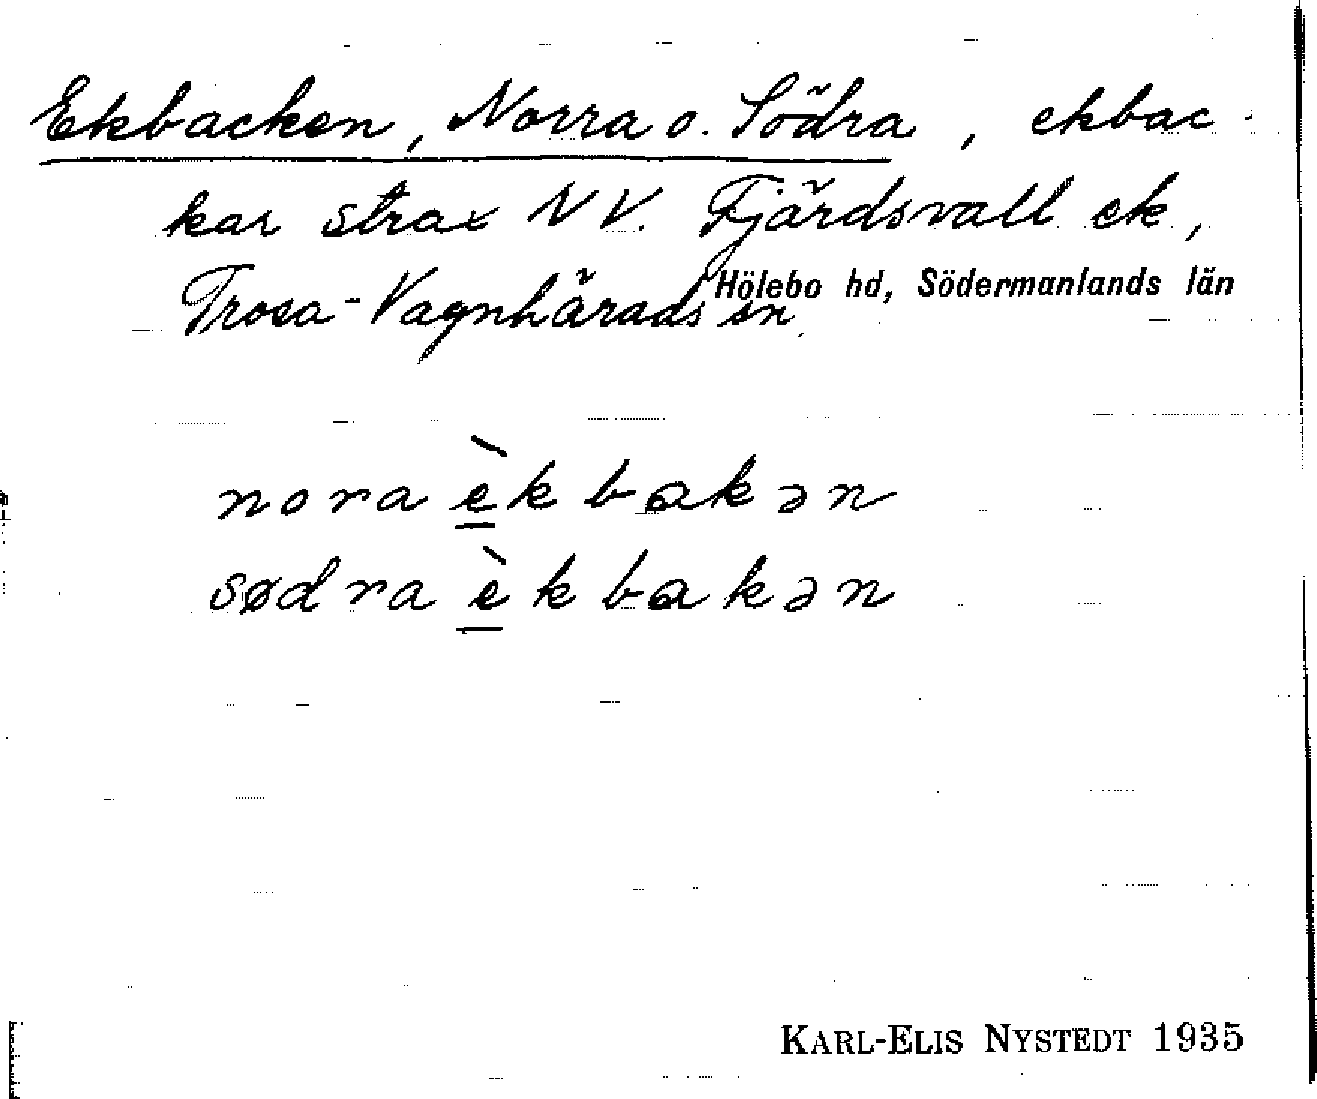 Ekbacken, Norra o. Södra, ekbac-
kar strax NV. Fjärdsvall ek,
Trosa-Vagnhärads sn
Hölebo hd, Södermanlands län
nora èkbakən
sødra èkbakən
KARL-ELIS NYSTEDT 1935